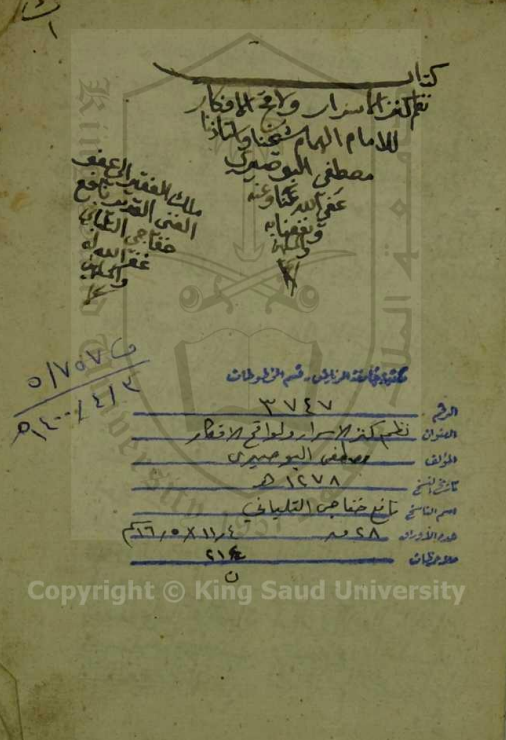 كتاب
نظم كنز الأسرار ولواقح الافكار
للامام الهمام شيخنا واستاذنا
مصطفى البوصيري
عفى الله عنا وعنه
ونفعنا به
والمسلمين
ملك الفقير الى عفو
الغني القدير نافع
خفاجي التلباني
غفر الله له
والمسلمين
مكتبة جامعة الرياض - قسم المخطوطات
الرقم ٣٧٤٧
العنوان نظم كنز الاسرار ولواقح الافكار
المؤلف مصطفى البوصيرى
تاريخ النسخ ١٢٧٨ هـ
اسم الناسخ نافع خفاجي التلباني
عدد الأوراق ٢٨ ١١٫٤ × ١٦٫٥ سم
ملاحظات
Copyright © King Saud University